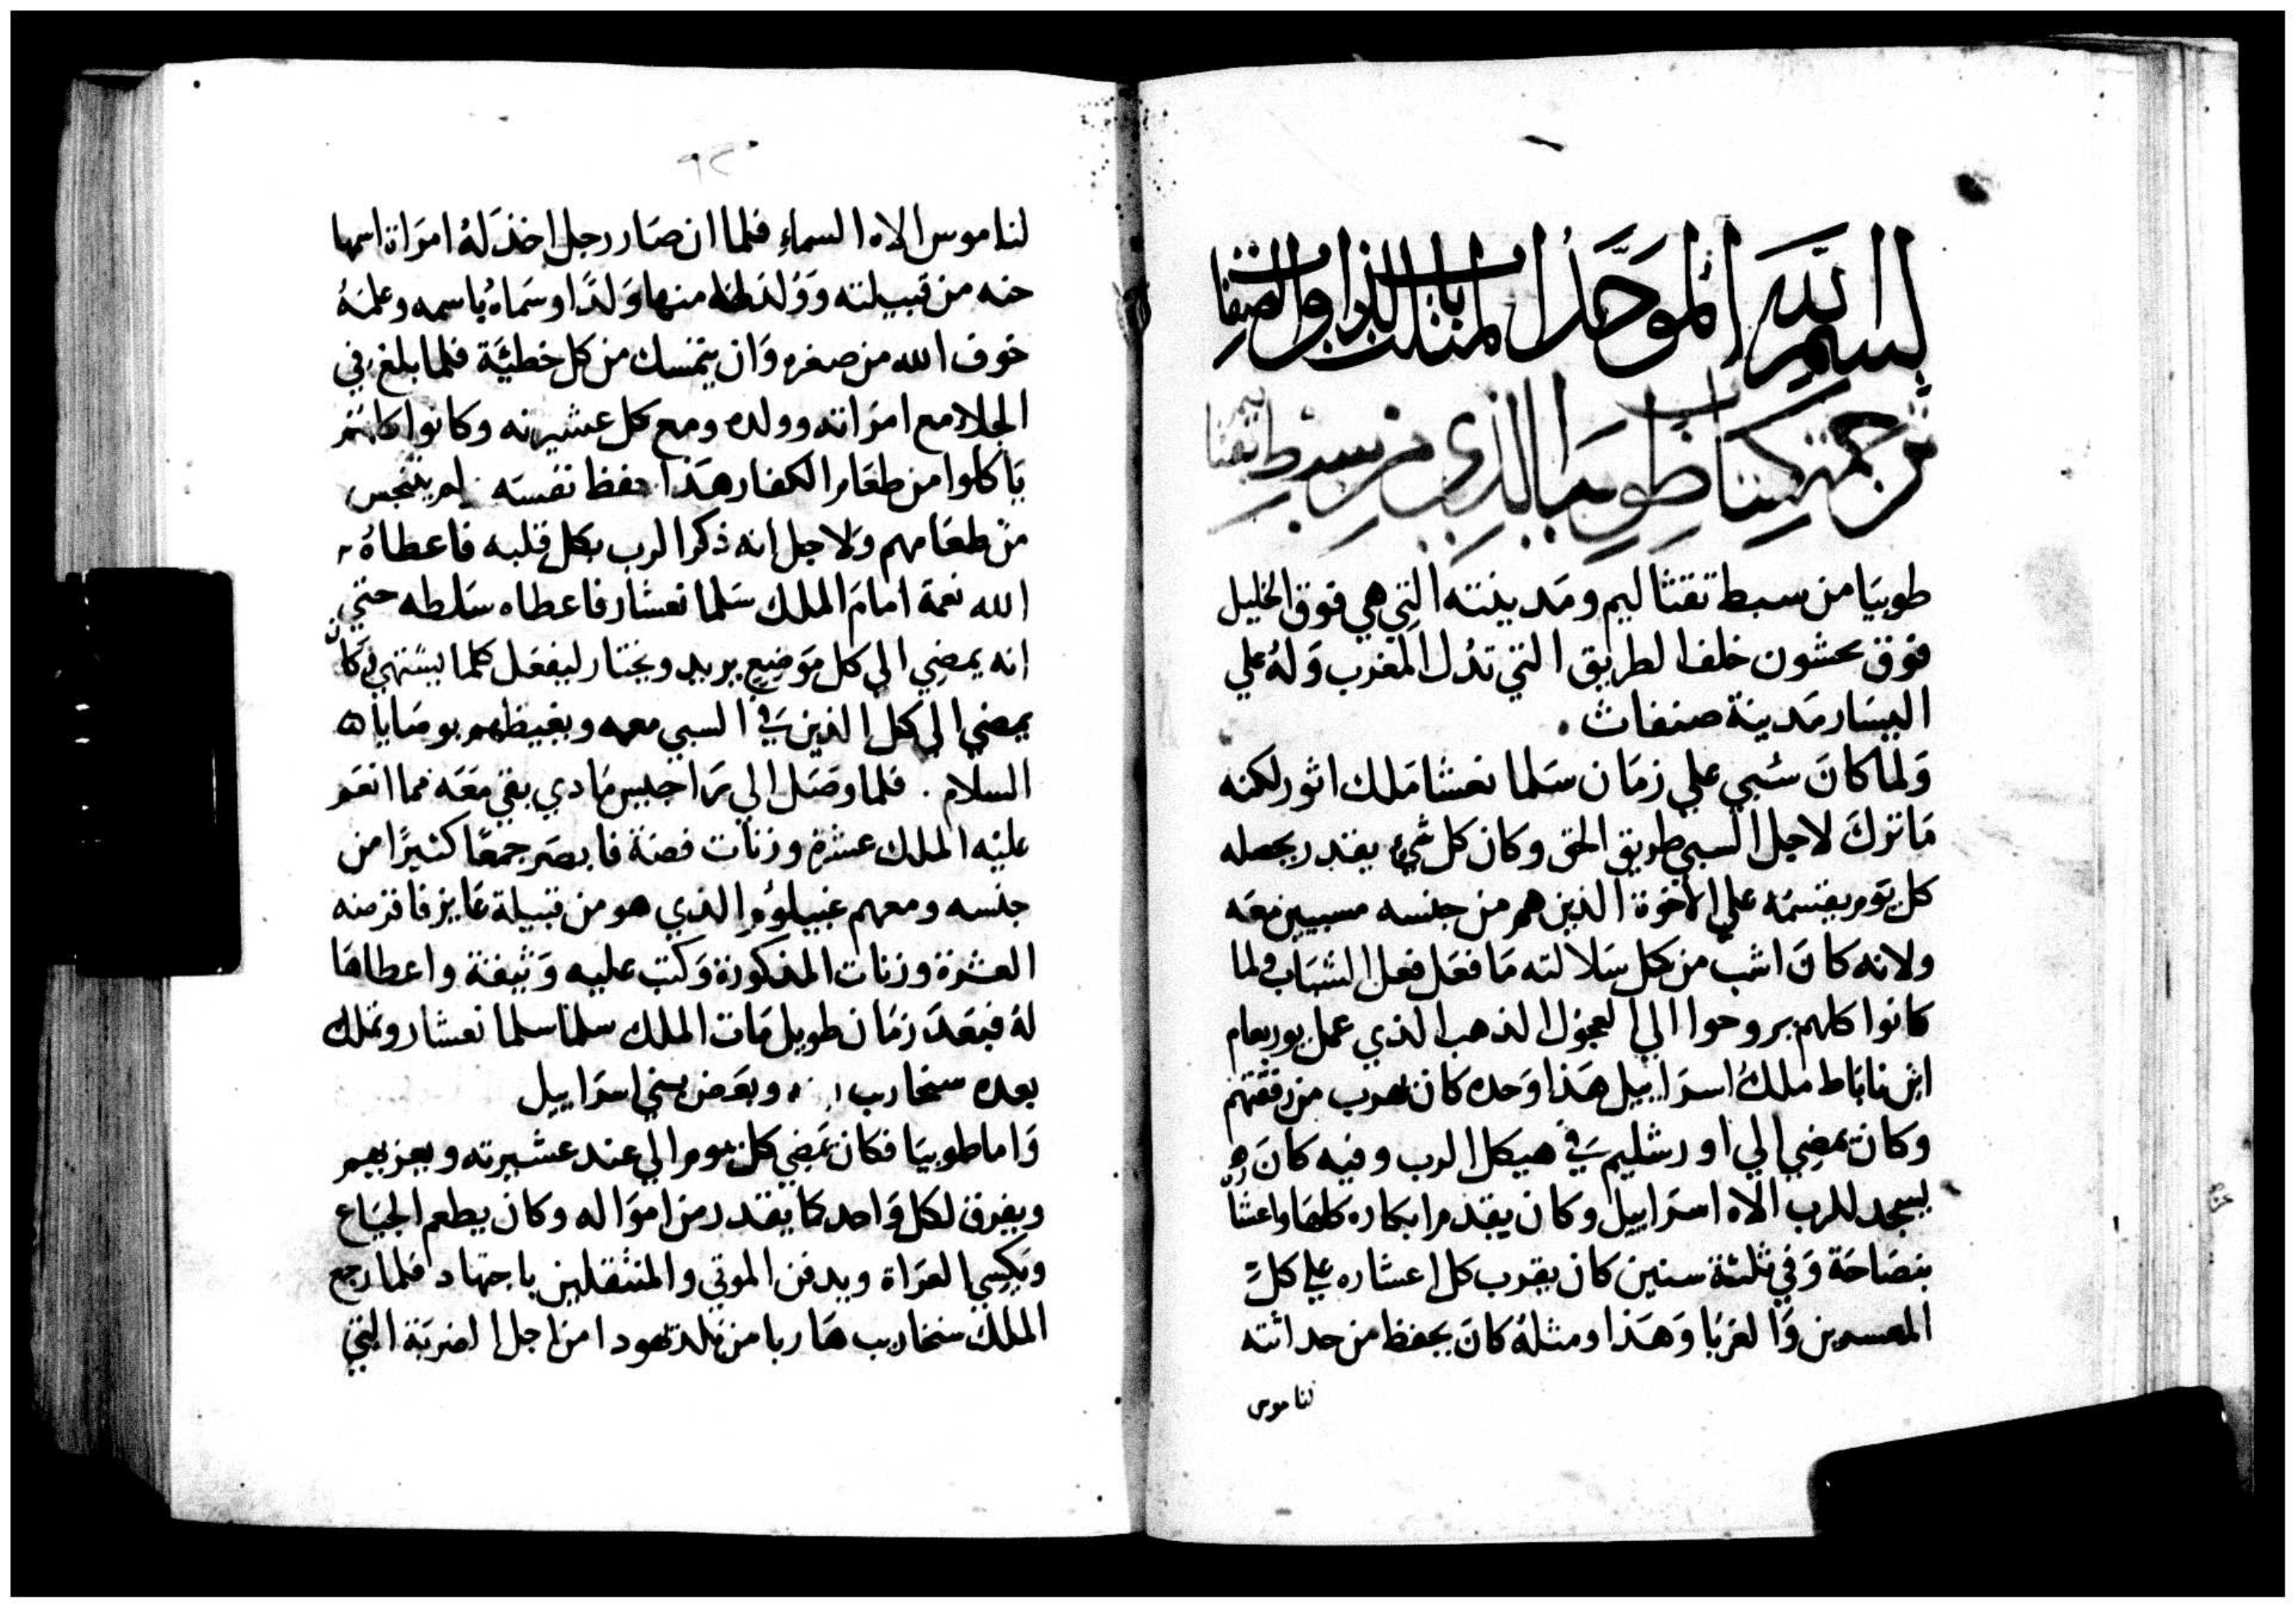 بسم الله الموحد بالذات المثلث الصفات
ترجمة كتاب طوبيا الذي من سبط نفتاليم
طوبيَا من سبط نفتاليم ومَدينته التي هي فوق الخليل
فوق نحشون خلف الطريق التي تدُل المغرب وَلهُ علي
اليسَار مَدينة صنفاث .
وَلما كانَ سُبي علي زمَان سَلما نعشا مَلك اثور لكنه
مَا تركَ لاجل السبي طريق الحق وكان كل شيء يقدر يحصله
كل يَوم يقسمَه علي الاخوة الذين هم من جنسه مسبيين معَه
ولانه كانَ اشب من كل سَلالته مَا فعَل فعل الشبَاب ولما
كانوا كلهم يروحوا الي العجول الذهب الذي عمل يوربعام
ابن ناباط ملكُ اسرَاييل هَذا وَحده كان يهرب من رفقتهم
وكان يمضِي الي اورشليم فَي هيكل الرب وفيه كانَ
يسجد للرب الاه اسرَاييل وكان يقدم ابكاره كلهَا واعشا
بنصَاحَة وَفي ثلثة سنين كان يقرب كل اعشاره علي كلَّ
المعسرين وَالغرَبَا وَهَذا ومثلهُ كانَ يحفظ من حداثته
لناموس
٩٢
لناموس الاه السماءِ فلما ان صَار رجل اخذ لَهُ امرَاة اسمها
حنه من قبيلته وَوُلد له منها وَلدًا وسمَاهُ باسمه وعلمَهُ
خوف الله من صغره وَان يتمسك من كل خطيَّة فلما بلغ في
الجلاء مع امرَاته وولده ومع كل عشيرته وكانوا كلهم
يَاكلوا من طعَام الكفار هَذا حفظ نفسَه لم يتنجس
من طعَامهم وَلاجل انه ذكر الرب بكل قلبه فاعطاهُ
الله نعمة امامَ الملك سَلما نعشار فاعطاه سَلطه حتي
انه يمضِي الي كل مَوضِع يريد ويختار ليفعَل كلما يشتهي وكان
يمضي الي كل الذين فَي السبي معه ويغيظهم بوصَايا
السلام . فلما وصَل الي رَاجيس مَادي بقي معَه مما انعَم
عليه الملك عشرة وزنَات فضة فابصَر جمعًا كثيرًا من
جنسه ومعهم غبيلوُس الذي هو من قبيلة عَايز فاقرضه
العشرة وزنات المذكورة وَكتب عليه وَثيقة واعطاهَا
لهُ فبَعَدَ زمَان طويل مَات الملك سلما سلما نعشار وتملك
بعده سنحاريب وبغَض بني اسرَاييل
وَاما طوبيَا فكان يمَضي كل يوم الي عند عشيرته ويعزيهم
ويفرق لكل وَاحد كما يقدر من امَواله وكان يطعم الجيَاع
ويَكسِي العرَاة ويدفن الموتي والمنتقلين باجتهاد فلما رجع
الملكَ سنحاريب هَاربا من بلد يهودا من اجل الضربَة التي